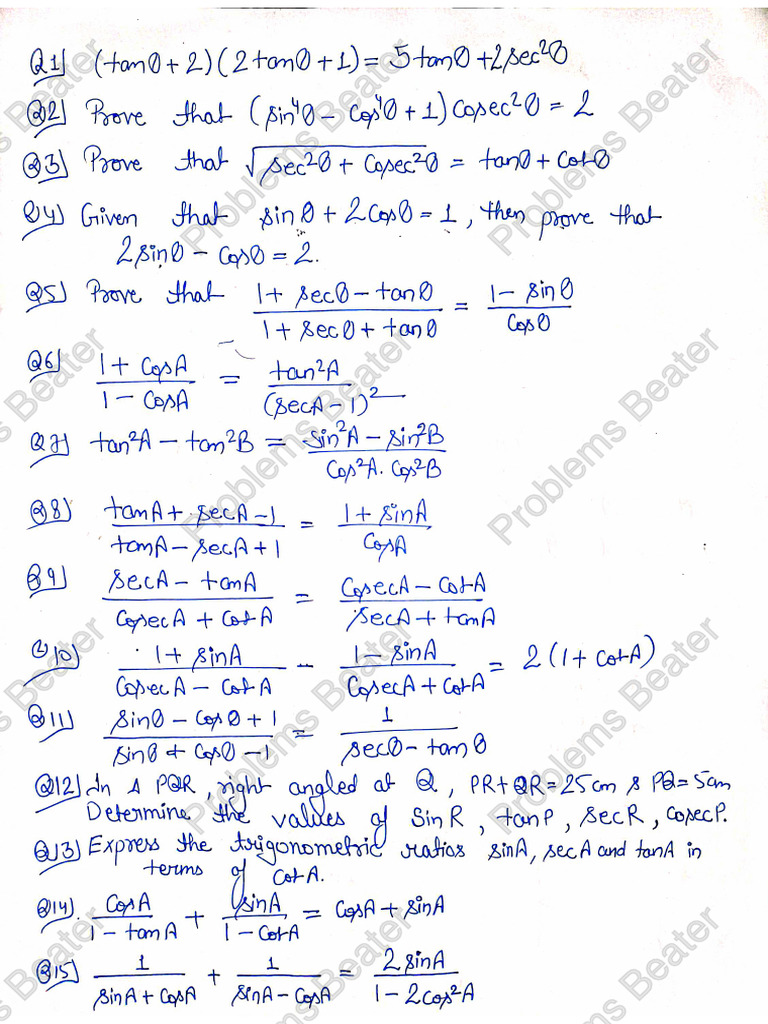 Q1) (tanθ+2)(2tanθ+1) = 5tanθ+2sec²θ
Q2) Prove that (sin⁴θ - cos⁴θ + 1) Cosec²θ = 2
Q3) Prove that √(sec²θ + Cosec²θ) = tanθ + cotθ
Q4) Given that sinθ + 2cosθ = 1, then prove that
2sinθ - cosθ = 2.
Q5) Prove that (1 + secθ - tanθ)/(1 + secθ + tanθ) = (1 - sinθ)/Cosθ
Q6) (1 + CosA)/(1 - CosA) = tan²A/(secA - 1)²
Q7) tan²A - tan²B = (sin²A - sin²B)/(Cos²A. Cos²B)
Q8) (tanA + secA - 1)/(tanA - secA + 1) = (1 + sinA)/CosA
Q9) (secA - tanA)/(CosecA + CotA) = (CosecA - CotA)/(secA + tanA)
Q10) (1 + sinA)/(CosecA - CotA) - (1 - sinA)/(CosecA + CotA) = 2(1 + CotA)
Q11) (sinθ - Cosθ + 1)/(sinθ + Cosθ - 1) = 1/(secθ - tanθ)
Q12) In Δ PQR, right angled at Q, PR+QR=25cm & PQ=5cm
Determine the values of SinR, tanP, secR, cosecP.
Q13) Express the trigonometric ratios sinA, secA and tanA in
terms of CotA.
Q14). CosA/(1 - tanA) + sinA/(1 - CotA) = CosA + sinA
Q15) 1/(sinA + CosA) + 1/(sinA - CosA) = 2sinA/(1 - 2cos²A)
Problems Beater